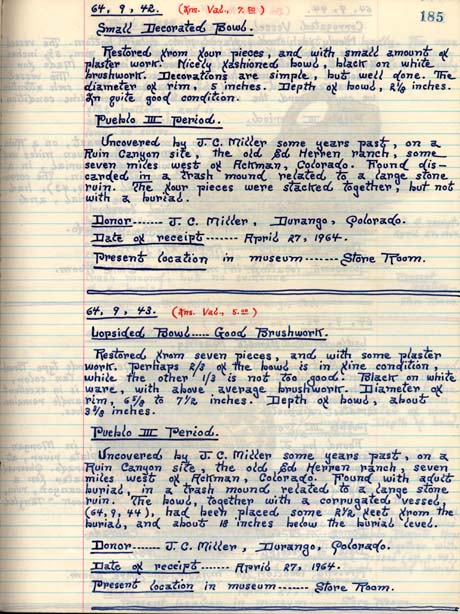 185
64, 9, 42. (Ins. Val., 7.50)
Small Decorated Bowl.
Restored from four pieces, and with small amount of
plaster work. Nicely fashioned bowl, black on white
brushwork. Decorations are simple, but well done. The
diameter of rim, 5 inches. Depth of bowl, 2 1/8 inches.
In quite good condition.
Pueblo III Period.
Uncovered by J. C. Miller some years past, on a
Ruin Canyon site, the old Ed Herren ranch, some
seven miles west of Ackman, Colorado. Found dis-
carded in a trash mound related to a large stone
ruin. The four pieces were stacked together, but not
with a burial.
Donor------- J. C. Miller, Durango, Colorado.
Date of receipt------- April 27, 1964.
Present location in museum------- Store Room.
64, 9, 43. (Ins. Val., 5.00)
Lopsided Bowl..... Good Brushwork.
Restored from seven pieces, and with some plaster
work. Perhaps 2/3 of the bowl is in fine condition,
while the other 1/3 is not too good. Black on white
ware, with above average brushwork. Diameter of
rim, 6 5/8 to 7 1/2 inches. Depth of bowl, about
3 3/8 inches.
Pueblo III Period.
Uncovered by J. C. Miller some years past, on a
Ruin Canyon site, the old Ed Herren ranch, seven
miles west of Ackman, Colorado. Found with adult
burial, in a trash mound related to a large stone
ruin. The bowl, together with a corrugated vessel,
(64, 9, 44), had been placed some 2 1/2 feet from the
burial, and about 18 inches below the burial level.
Donor------- J. C. Miller, Durango, Colorado.
Date of receipt------- April 27, 1964.
Present location in museum------- Store Room.